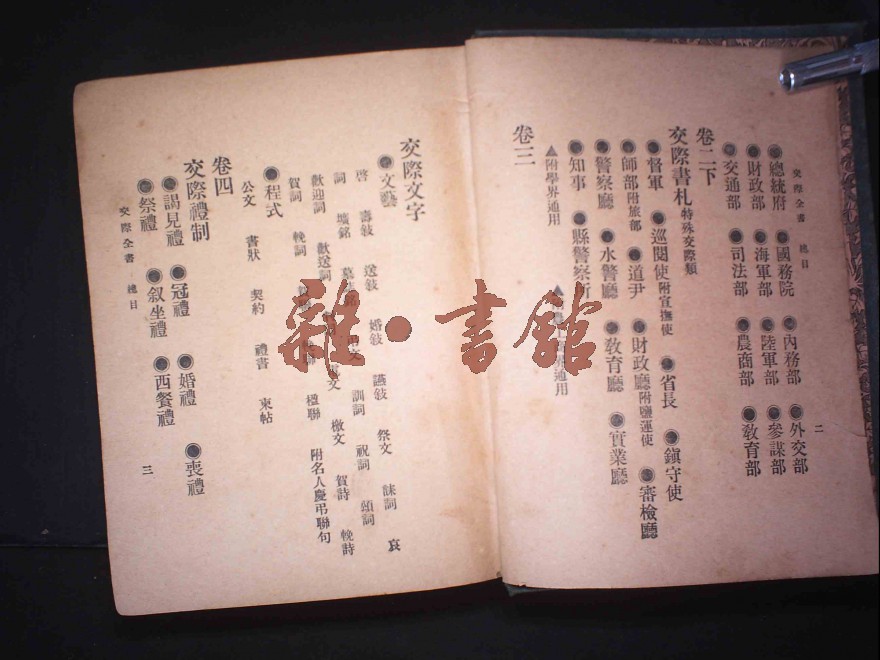 交際全書 總目
二
●總統府 ●國務院 ●內務部 ●外交部
●財政部 ●海軍部 ●陸軍部 ●參謀部
●交通部 ●司法部 ●農商部 ●教育部
卷二下
交際書札特殊交際類
●督軍 ●巡閱使附宣撫使 ●省長 ●鎮守使
●師部附旅部 ●道尹 ●財政廳附鹽運使 ●審檢廳
●警察廳 ●水警廳 ●教育廳 ●實業廳
●知事 ●縣警察所
▲附學界通用 通用
卷三
交際文字
●文藝
啓 壽敍 送敍 婚敍 讌敍 祭文 誄詞 哀
詞 壙銘 墓 訓詞 祝詞 頌詞
歡迎詞 歡送詞 文 檄文 賀詩 輓詩
賀詞 輓詞 楹聯 附名人慶弔聯句
●程式
公文 書狀 契約 禮書 柬帖
卷四
交際禮制
●謁見禮 ●冠禮 ●婚禮 ●喪禮
●祭禮 ●叙坐禮 ●西餐禮
交際全書 總目
三
雜·書館